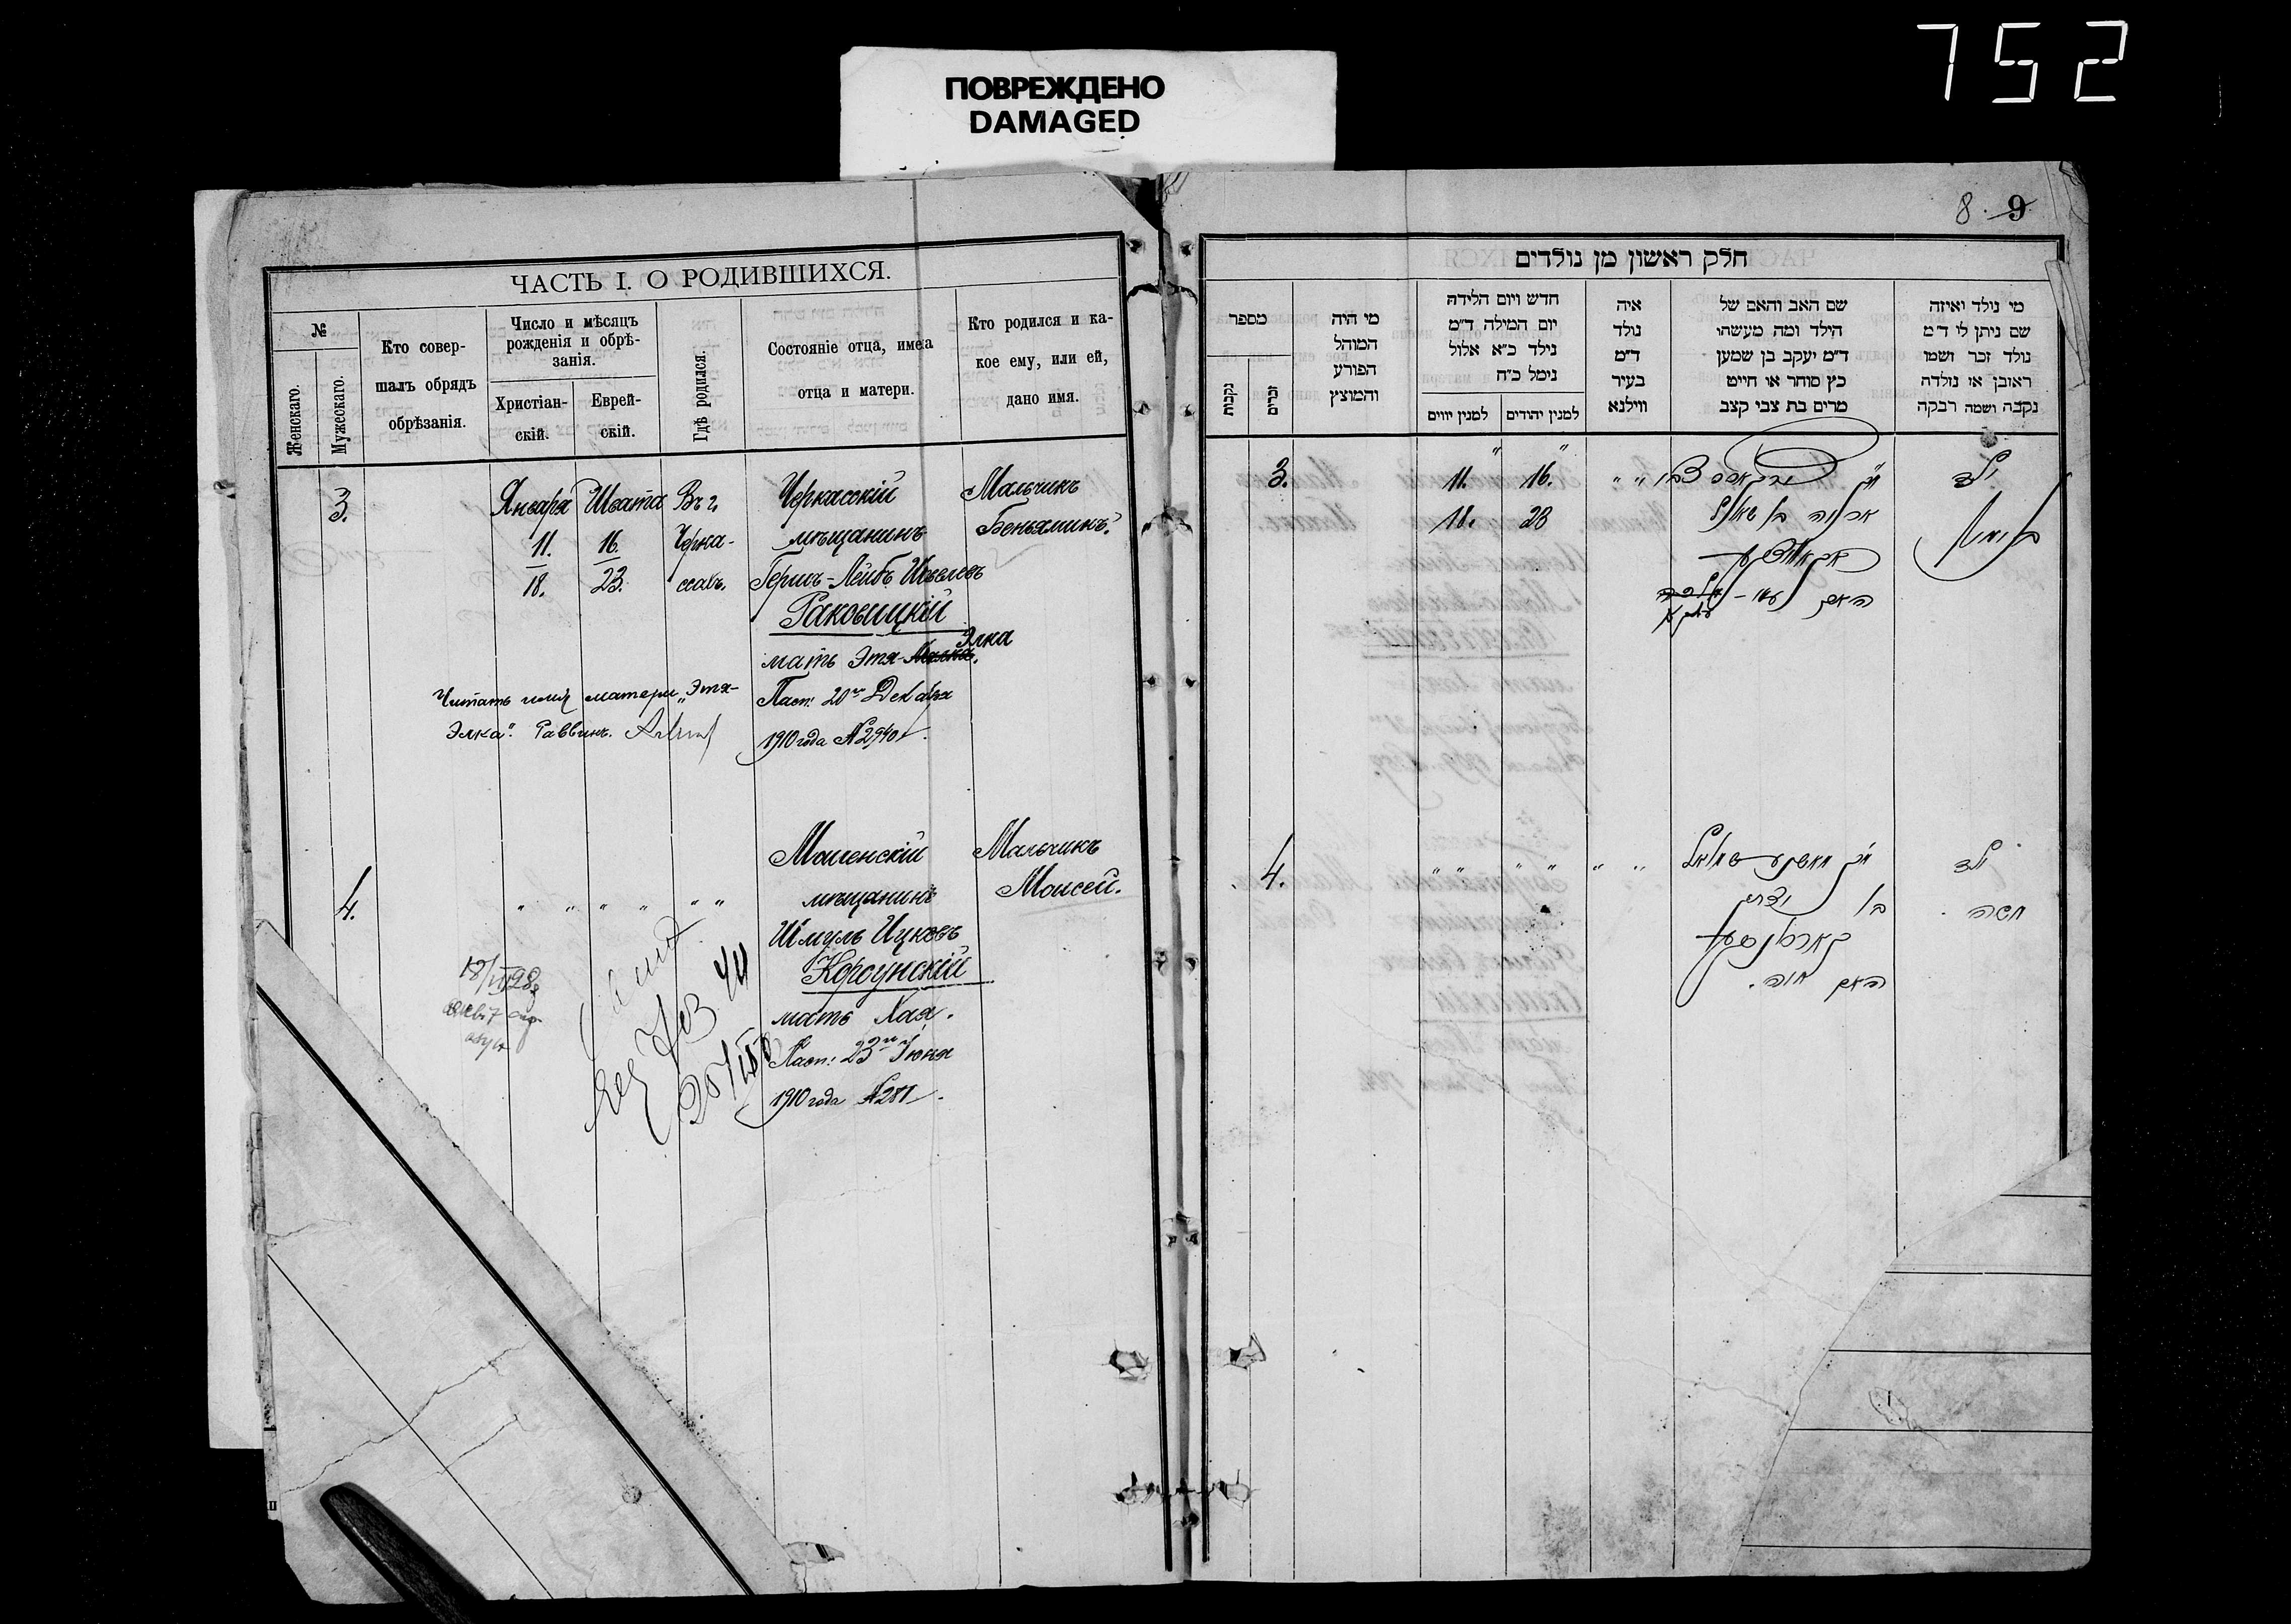 752
ПОВРЕЖДЕНО
DAMAGED
ЧАСТЬ I. О РОДИВШИХСЯ.
№
Женскаго.
Мужескаго.
Кто совер-
шалъ обрядъ
обрѣзанія.
Число и мѣсяцъ
рожденія и обрѣ-
занія.
Христіан-
скій.
Еврей-
скій.
Гдѣ родился.
Состояніе отца, имена
отца и матери.
Кто родился и ка-
кое ему, или ей,
дано имя.
3.
Января Швата Въ г. Черкасскій Мальчикъ
11. 16. Черка- мѣщанинъ Беньяминъ.
18. 23. ссахъ. Гершъ-Лейбъ
Раковицкій
Элка
мать Этя-
Читать имя матери „Этя-
Элка". Раввинъ.
Пасп: 20го Декабря
1910 года № 2940
4.
" " " " " "
Мошенскій Мальчикъ
мѣщанинъ Моисей.
Шмуль Ицковъ
Корсунскій
мать Хая.
Пасп: 23го Іюня
1910 года № 281
8. 9
חלק ראשון מן נולדים
מספר
נקבות
זכרים
מי היה
המוהל
הפורע
והמוצץ
חדש ויום הלידה
יום המילה ד״מ
נילד כ״א אלול
נימל כ״ח
למנין יווים
למנין יהודים
איה
נולד
ד״מ
בעיר
ווילנא
שם האב והאם של
הילד ומה מעשהו
ד״מ יעקב בן שמען
כץ סוחר או חייט
מרים בת צבי קצב
מי נולד ואיזה
שם ניתן לי ד״מ
נולד זכר ושמו
ראובן או נולדה
נקבה ושמה רבקה
3.
11. 16.
18. 23
ילד
בנימין
האם
4.
" " " " " "
ילד
משה
שמואל
בן
האם חיה.